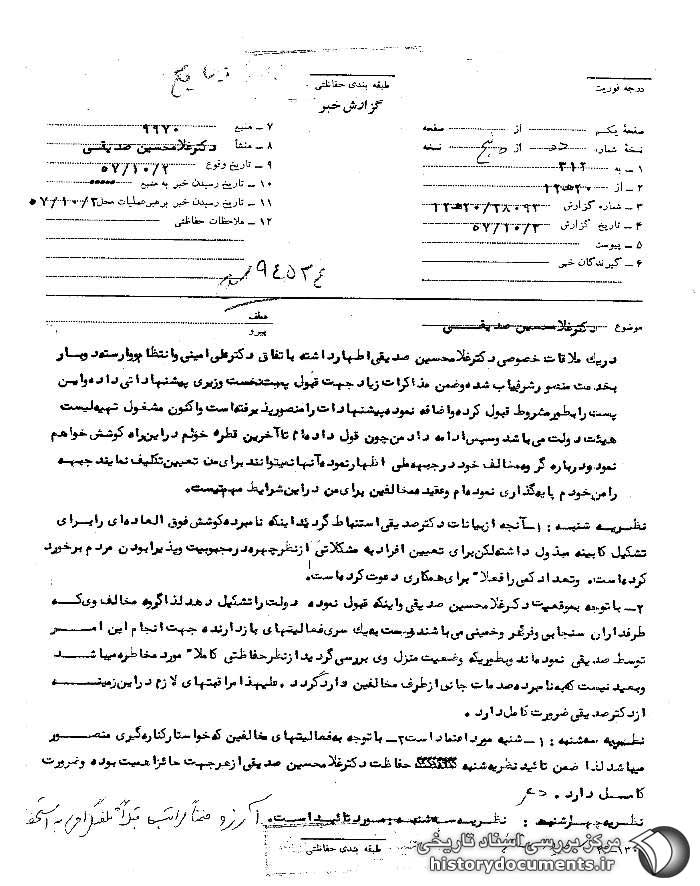 طبقه بندی حفاظتی
درجه فوریت
گزارش خبر
صفحهٔ یکم از صفحه
نسخهٔ شماره از پنج نسخه
۱ـ به ۳۱۲
۲ـ از ۲۰هـ۱۲
۳ ـ شماره گزارش ۲۸۰۹۲/۲۰هـ۱۲
۴ ـ تاریخ گزارش ۵۷/۱۰/۳
۵ ـ پیوست
۶ ـ گیرندگان خبر
۷ ـ منبع ۹۹۷۰
۸ ـ منشأ دکترغلامحسین صدیقی
۹ ـ تاریخ وقوع ۵۷/۱۰/۲
۱۰ ـ تاریخ رسیدن خبر به منبع
۱۱ ـ تاریخ رسیدن خبر برهبرعملیات محل ۵۷/۱۰/۲
۱۲ ـ ملاحظات حفاظتی
موضوع دکترغلامحسین صدیقی
عطف
پیرو
دریك ملاقات خصوصی دکترغلامحسین صدیقی اظهارداشته باتفاق دکترعلی امینی وانتظام ووارسته دوبار
بخدمت منصور شرفیاب شده وضمن مذاکرات زیاد جهت قبول پست نخست وزیری پیشنهاداتی داده واین
پست رابطورمشروط قبول کرده واضافه نموده پیشنهادات رامنصورپذیرفته است واکنون مشغول تهیه لیست
هیئت دولت می باشد وسپس ادامه داد من چون قول داده ام تاآخرین قطره خونم دراین راه کوشش خواهم
نمود ودرباره گروه مخالف خود درجبهه ملی اظهارنموده آنها نمیتوانند برای من تعیین تکلیف نمایند جبهه
رامن خودم پایه گذاری نموده ام وعقیده مخالفین برای من دراین شرایط مهم نیست.
نظریه شنبه : ۱ـ آنچه ازبیانات دکترصدیقی استنباط گردید اینکه نامبرده کوشش فوق العاده ای رابرای
تشکیل کابینه مبذول داشته لکن برای تعیین افراد به مشکلاتی ازنظرچهره ومحبوبیت وپذیرابودن مردم برخورد
کرده است. وتعداد کمی رافعلا" برای همکاری دعوت کرده است.
۲ـ باتوجه بموقعیت دکترغلامحسین صدیقی واینکه قبول نموده دولت راتشکیل دهد لذاگروه مخالف وی که
طرفداران سنجابی وفروهر وخمینی می باشند دست به یك سری فعالیتهای بازدارنده جهت انجام این امر
توسط صدیقی نموده اند وبطوریکه وضعیت منزل وی بررسی گردید ازنظرحفاظتی کاملا" مورد مخاطره میباشد
وبعید نیست که به نامبرده صدمات جانی ازطرف مخالفین واردگردد . علیهذا مراقبتهای لازم دراین زمینه
ازدکترصدیقی ضرورت کامل دارد .
نظریه سه شنبه : ۱ـ شنبه مورداعتماد است ۲ـ باتوجه به فعالیتهای مخالفین که خواستارکناره گیری منصور
میباشد لذا ضمن تائید نظریه شنبه حفاظت دکترغلامحسین صدیقی ازهرجهت حائزاهمیت بوده وضرورت
کامل دارد .
نظریه چهارشنبه : نظریه سه شنبه مورد تائید است. آرزو ضمناً مراتب قبلاً
طبقه بندی حفاظتی
مرکز بررسی اسناد تاریخی
historydocuments.ir